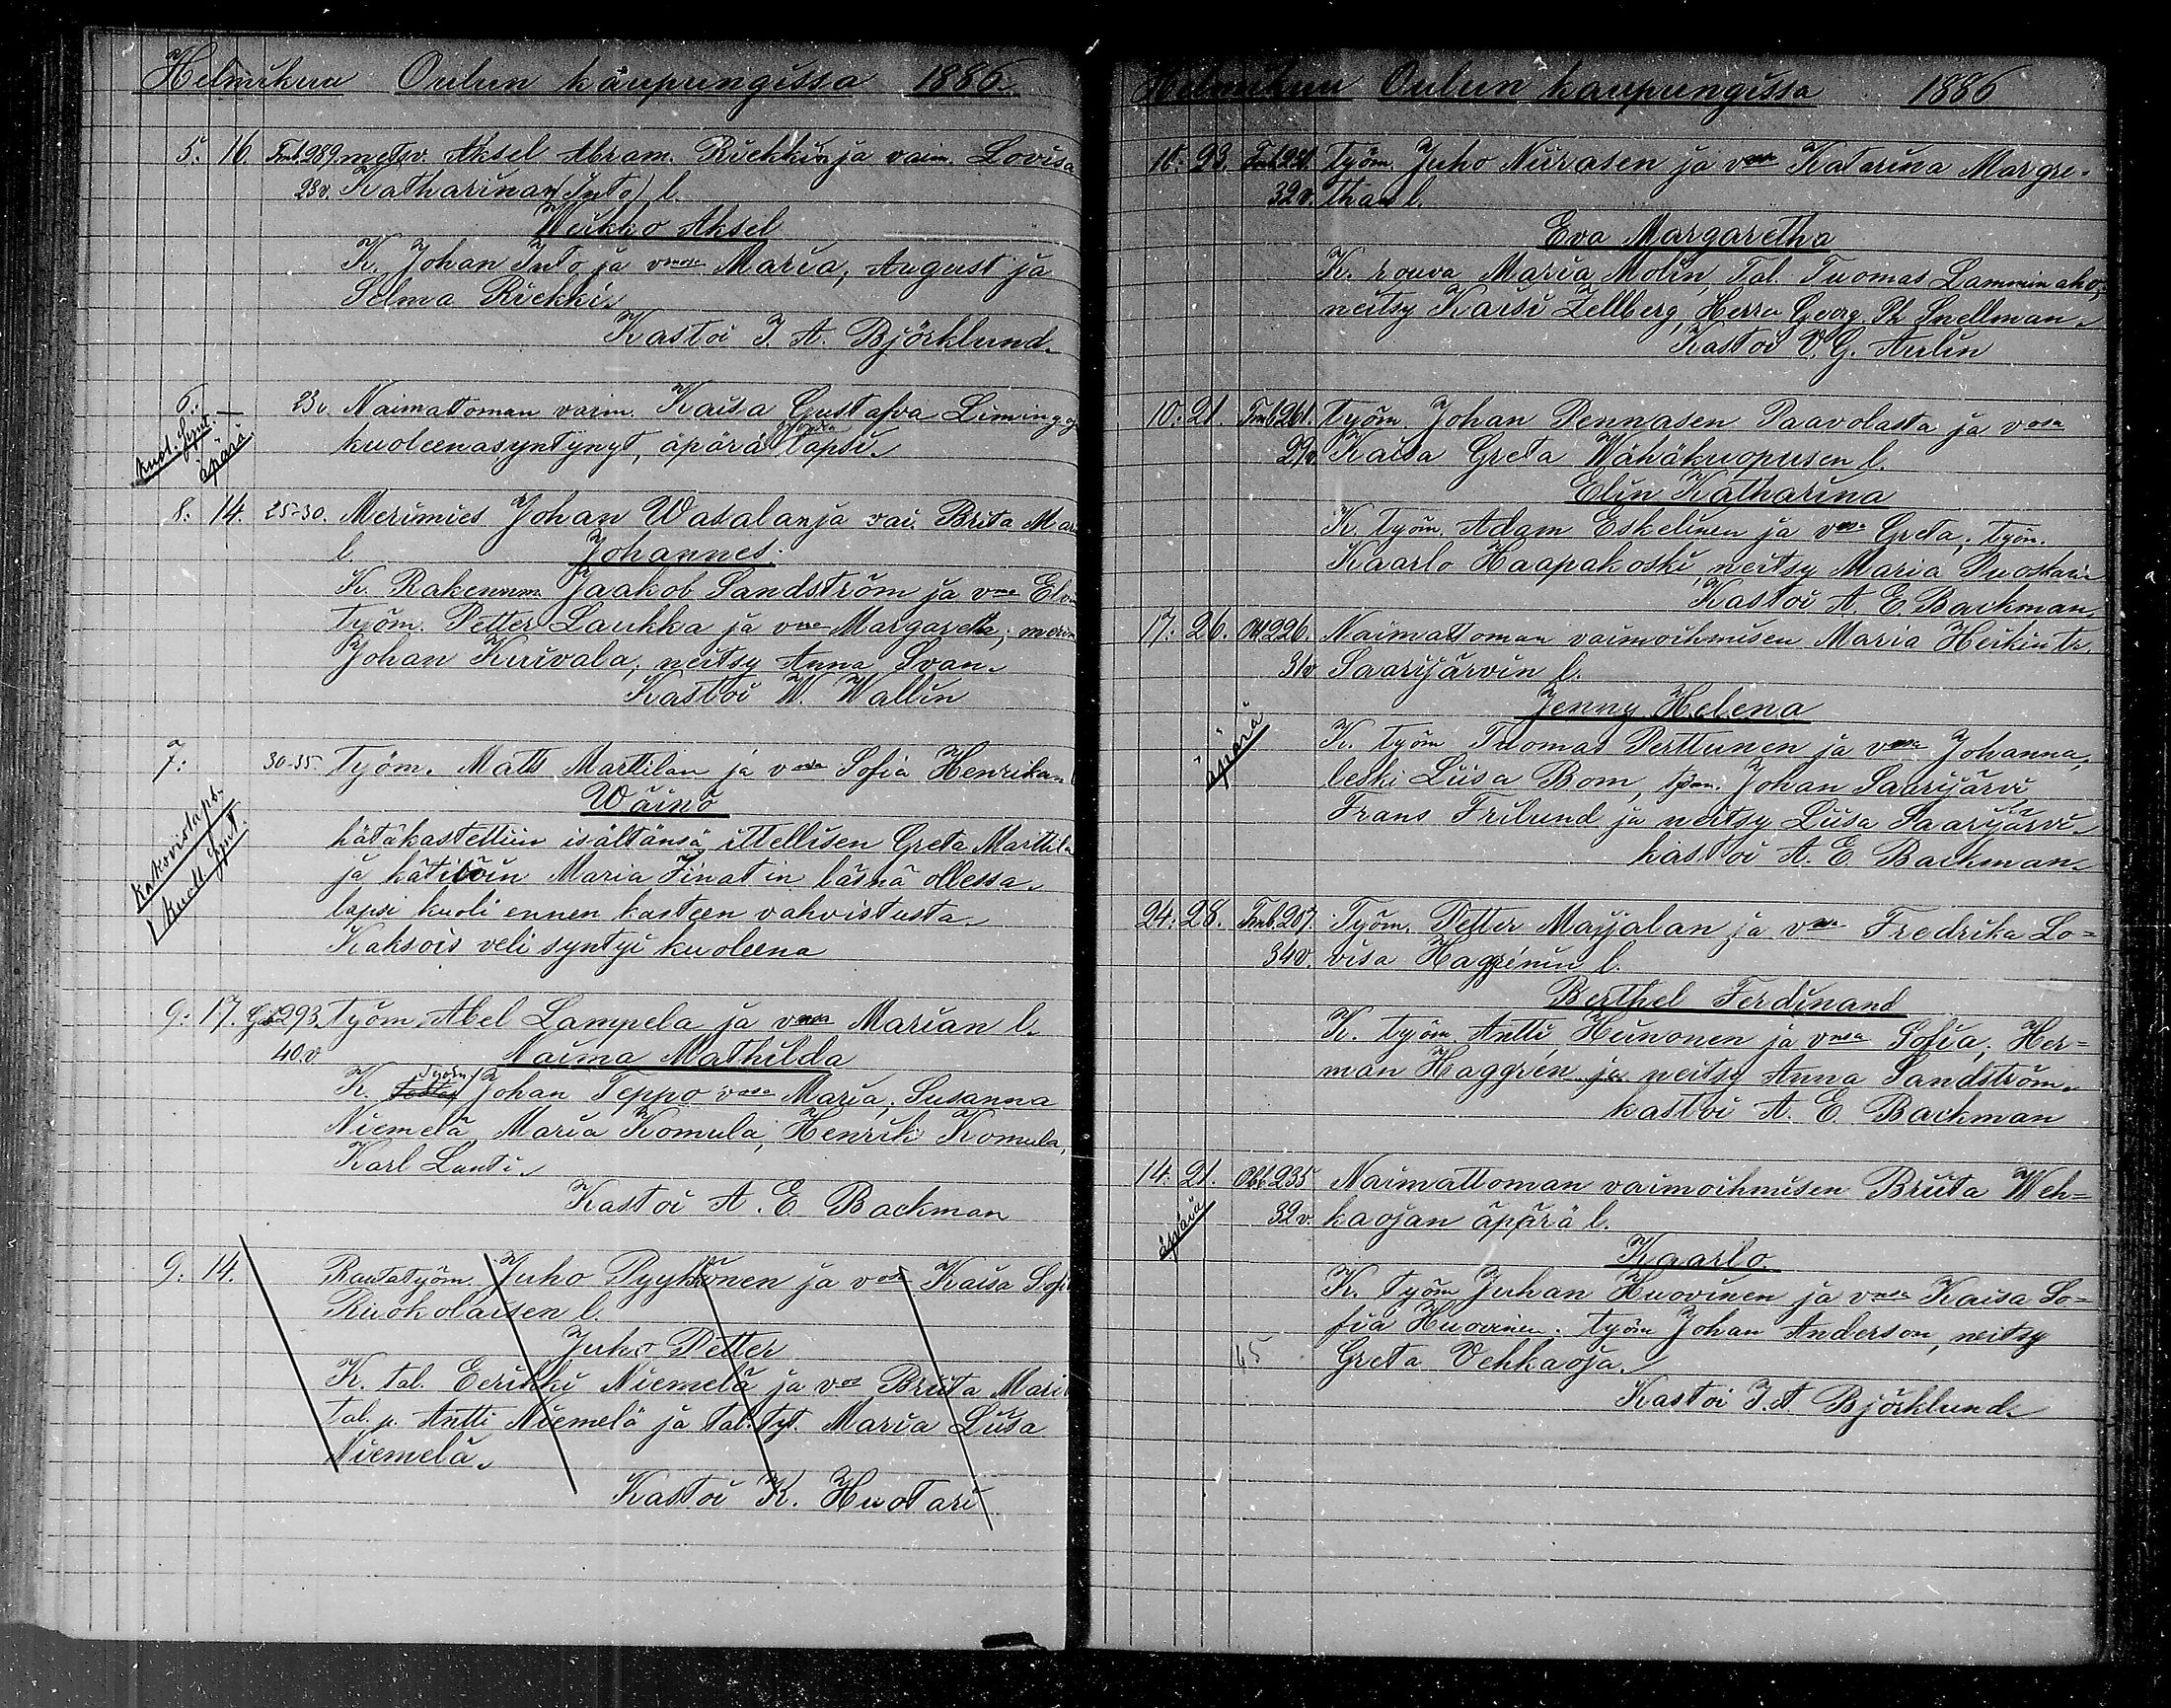 Helmikuu Oulun kaupungissa 1886.
5. 16. Tmb.289. metsv. Aksel Abram. Riekkin ja vaim. Lovisa
23v. Katharinan (Into) l.
Weikko Aksel
K. Johan Into ja vmonsa Maria, August ja
Selma Riekki.
Kastoi J. A. Björklund.
6: — 23v. Naimatoman vaim. Kaisa Gustafva Liminggo
kuol. synt. äpärä kuoleenasyntynyt, äpärä lapsi.
8. 14. 25-30. Merimies Johan Wasalan ja vai. Brita Mar
l. Johannes.
K. Rakennusm. Jaakob Sandström ja vmo Elv
työm. Petter Laukka ja vmo Margareta; merim
Johan Kuivala, neitsy Anna Svan.
Kastoi W. Wallin
7: 30-35. työm. Matts Martilan ja vmonsa Sofia Henrikan l
Wäinö
hätäkastettiin isältänsä ittellisen Greta Marttila
ja kätilöin Maria Finatin läsnä ollessa.
lapsi kuoli ennen kasteen vahvistusta.
Kaksois veli syntyi kuoleena
kaksoista ps.
1 kuoll. synt.
9: 17. 293. työm. Abel Lampela ja vmonsa Marian l.
40.v Naima Mathilda
K. työm. Johan Teppo vmonsa Maria, Susanna
Niemelä, Maria Komula, Henrik Komula,
Karl Lanti.
Kastoi A. E. Backman
9: 14. Rautatyöm. Juho Pyykönen ja vmonsa Kaisa Sofi
Ruokolaisen l.
Juho Petter
K. tal. Eerikki Niemelä ja vmo Briita Mari
tal. p. Antti Niemelä ja tal. tyt. Maria Liisa
Niemelä.
Kastoi K. Huotari
Helmikuu Oulun kaupungissa 1886
10: 23. Tmb.221. työm. Juho Niirasen ja vmo Katarina Margre-
32v. than l.
Eva Margaretha
K. rouva Maria Molin, Tal. Tuomas Lamminaho,
neitsy Kaisi Zellberg, Herra Georg Th Snellman.
Kastoi V. G. Aulin
10: 21. Tmb.261. työm. Johan Pennasen Paavolasta ja vmonsa
29v Kaisa Greta Wähäkuopusen l.
Elin Katharina
K. työm. Adam Eskelinen ja vmonsa Greta, työm.
Kaarlo Haapakoski, neitsy Maria Puoskari
Kastoi A. E. Backman.
17: 26. 226. Naimattoman vaimoihmisen Maria Heikin tr.
31v Saarijärvin l.
äpärä
Jenny Helena
K. työm Tuomas Perttunen ja vmonsa Johanna,
leski Liisa Bom, työm. Johan Saarijärvi
Frans Frilund ja neitsy Liisa Saarijärvi.
kastoi A. E. Backman.
24: 28. Tmb.207. Työm. Petter Maijalan ja vmo Fredrika Lo=
34v. visa Haggrénin l.
Berthel Ferdinand
K. työm. Antti Heinonen ja vmonsa Sofia, Her=
man Haggrén ja neitsy Anna Sandström.
kastoi A. E. Backman
14: 21. 235 Naimattoman vaimoihmisen Briita Weh=
äpärä 32v. kaojan äpärä l.
Kaarlo.
K. työm Juhan Huovinen ja vmonsa Kaisa So=
fia Huovinen. työm Johan Anderson, neitsy
65 Greta Vehkaoja.
Kastoi J. A Björklund.